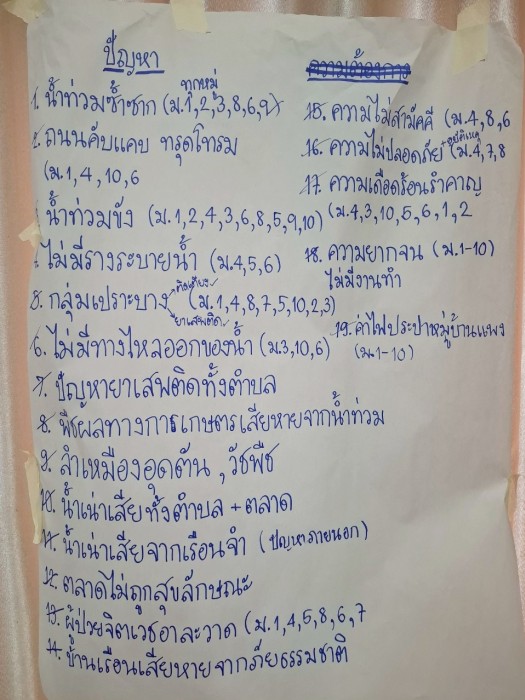 ปัญหา
ทุกหมู่
1. น้ำท่วมซ้ำซาก (ม.1,2,3,8,6,9)
2. ถนนคับแคบ ทรุดโทรม
(ม.1,4,10,6
น้ำท่วมขัง (ม.1,2,4,3,6,8,5,9,10)
ไม่มีรางระบายน้ำ (ม.4,5,6)
5. กลุ่มเปราะบาง (ม.1,4,8,7,5,10,2,3)
ติดเตียง
ยาเสพติด
6. ไม่มีทางไหลออกของน้ำ (ม.3,10,6)
7. ปัญหายาเสพติดทั้งตำบล
8. พืชผลทางการเกษตรเสียหายจากน้ำท่วม
9. ลำเหมืองอุดตัน, วัชพืช
10. น้ำเน่าเสียทั้งตำบล + ตลาด
11. น้ำเน่าเสียจากเรือนจำ (ปัญหาภายนอก)
12. ตลาดไม่ถูกสุขลักษณะ
13. ผู้ป่วยจิตเวชอาละวาด (ม.1,4,5,8,6,7
14. บ้านเรือนเสียหายจากภัยธรรมชาติ
ความต้องการ
15. ความไม่สามัคคี (ม.4,8,6
16. ความไม่ปลอดภัย (ม.4,7,8
17. ความเดือดร้อนรำคาญ
(ม.4,3,10,5,6,1,2
18. ความยากจน (ม.1-10)
ไม่มีงานทำ
19. ค่าไฟประปาหมู่บ้านแพง
(ม.1-10)